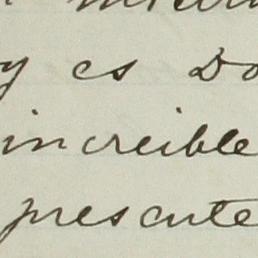 y es Do
increible
presente